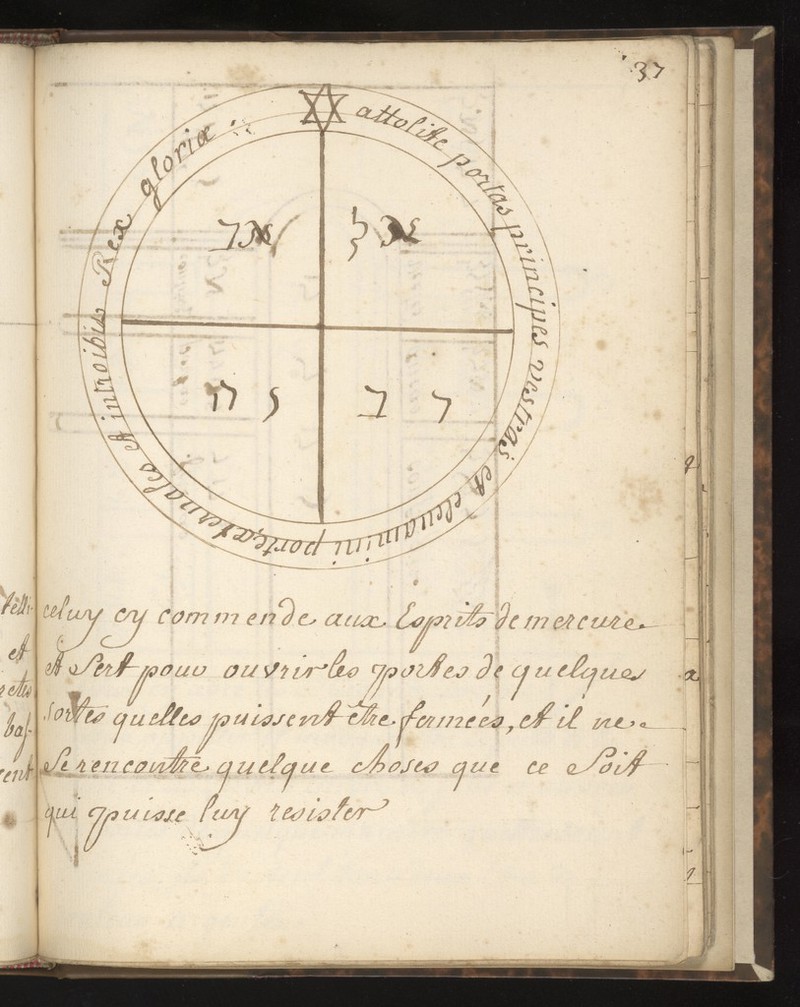 37
attolite portas principes vestras et elevamini portæ æternales et introibit Rex gloriæ
celuy cy commende aux Esprits de mercure
et Sert pour ouvrir les portes de quelques
sortes quelles puissent être fermées, et il ne
Se rencontre quelque choses que ce Soit
qui puisse luy resister